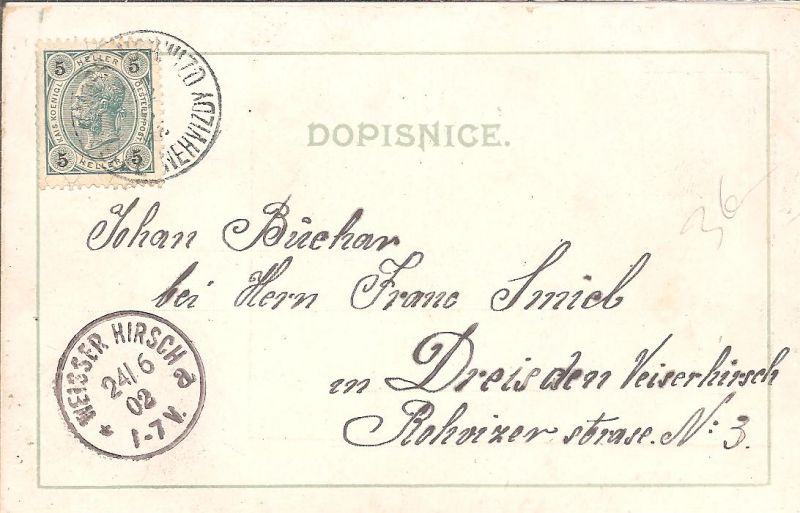 5 HELLER 5
KAIS. KOENIGL. OESTERR. POST
5 HELLER 5
NEHVIZDY
DOPISNICE.
36
Johan Büchar
bei Hern Franc Smicl
in Dreisden Veiserhirsch
Rohvizer strase. N: 3.
WEISSER HIRSCH a
24/6
02
1-7 V.